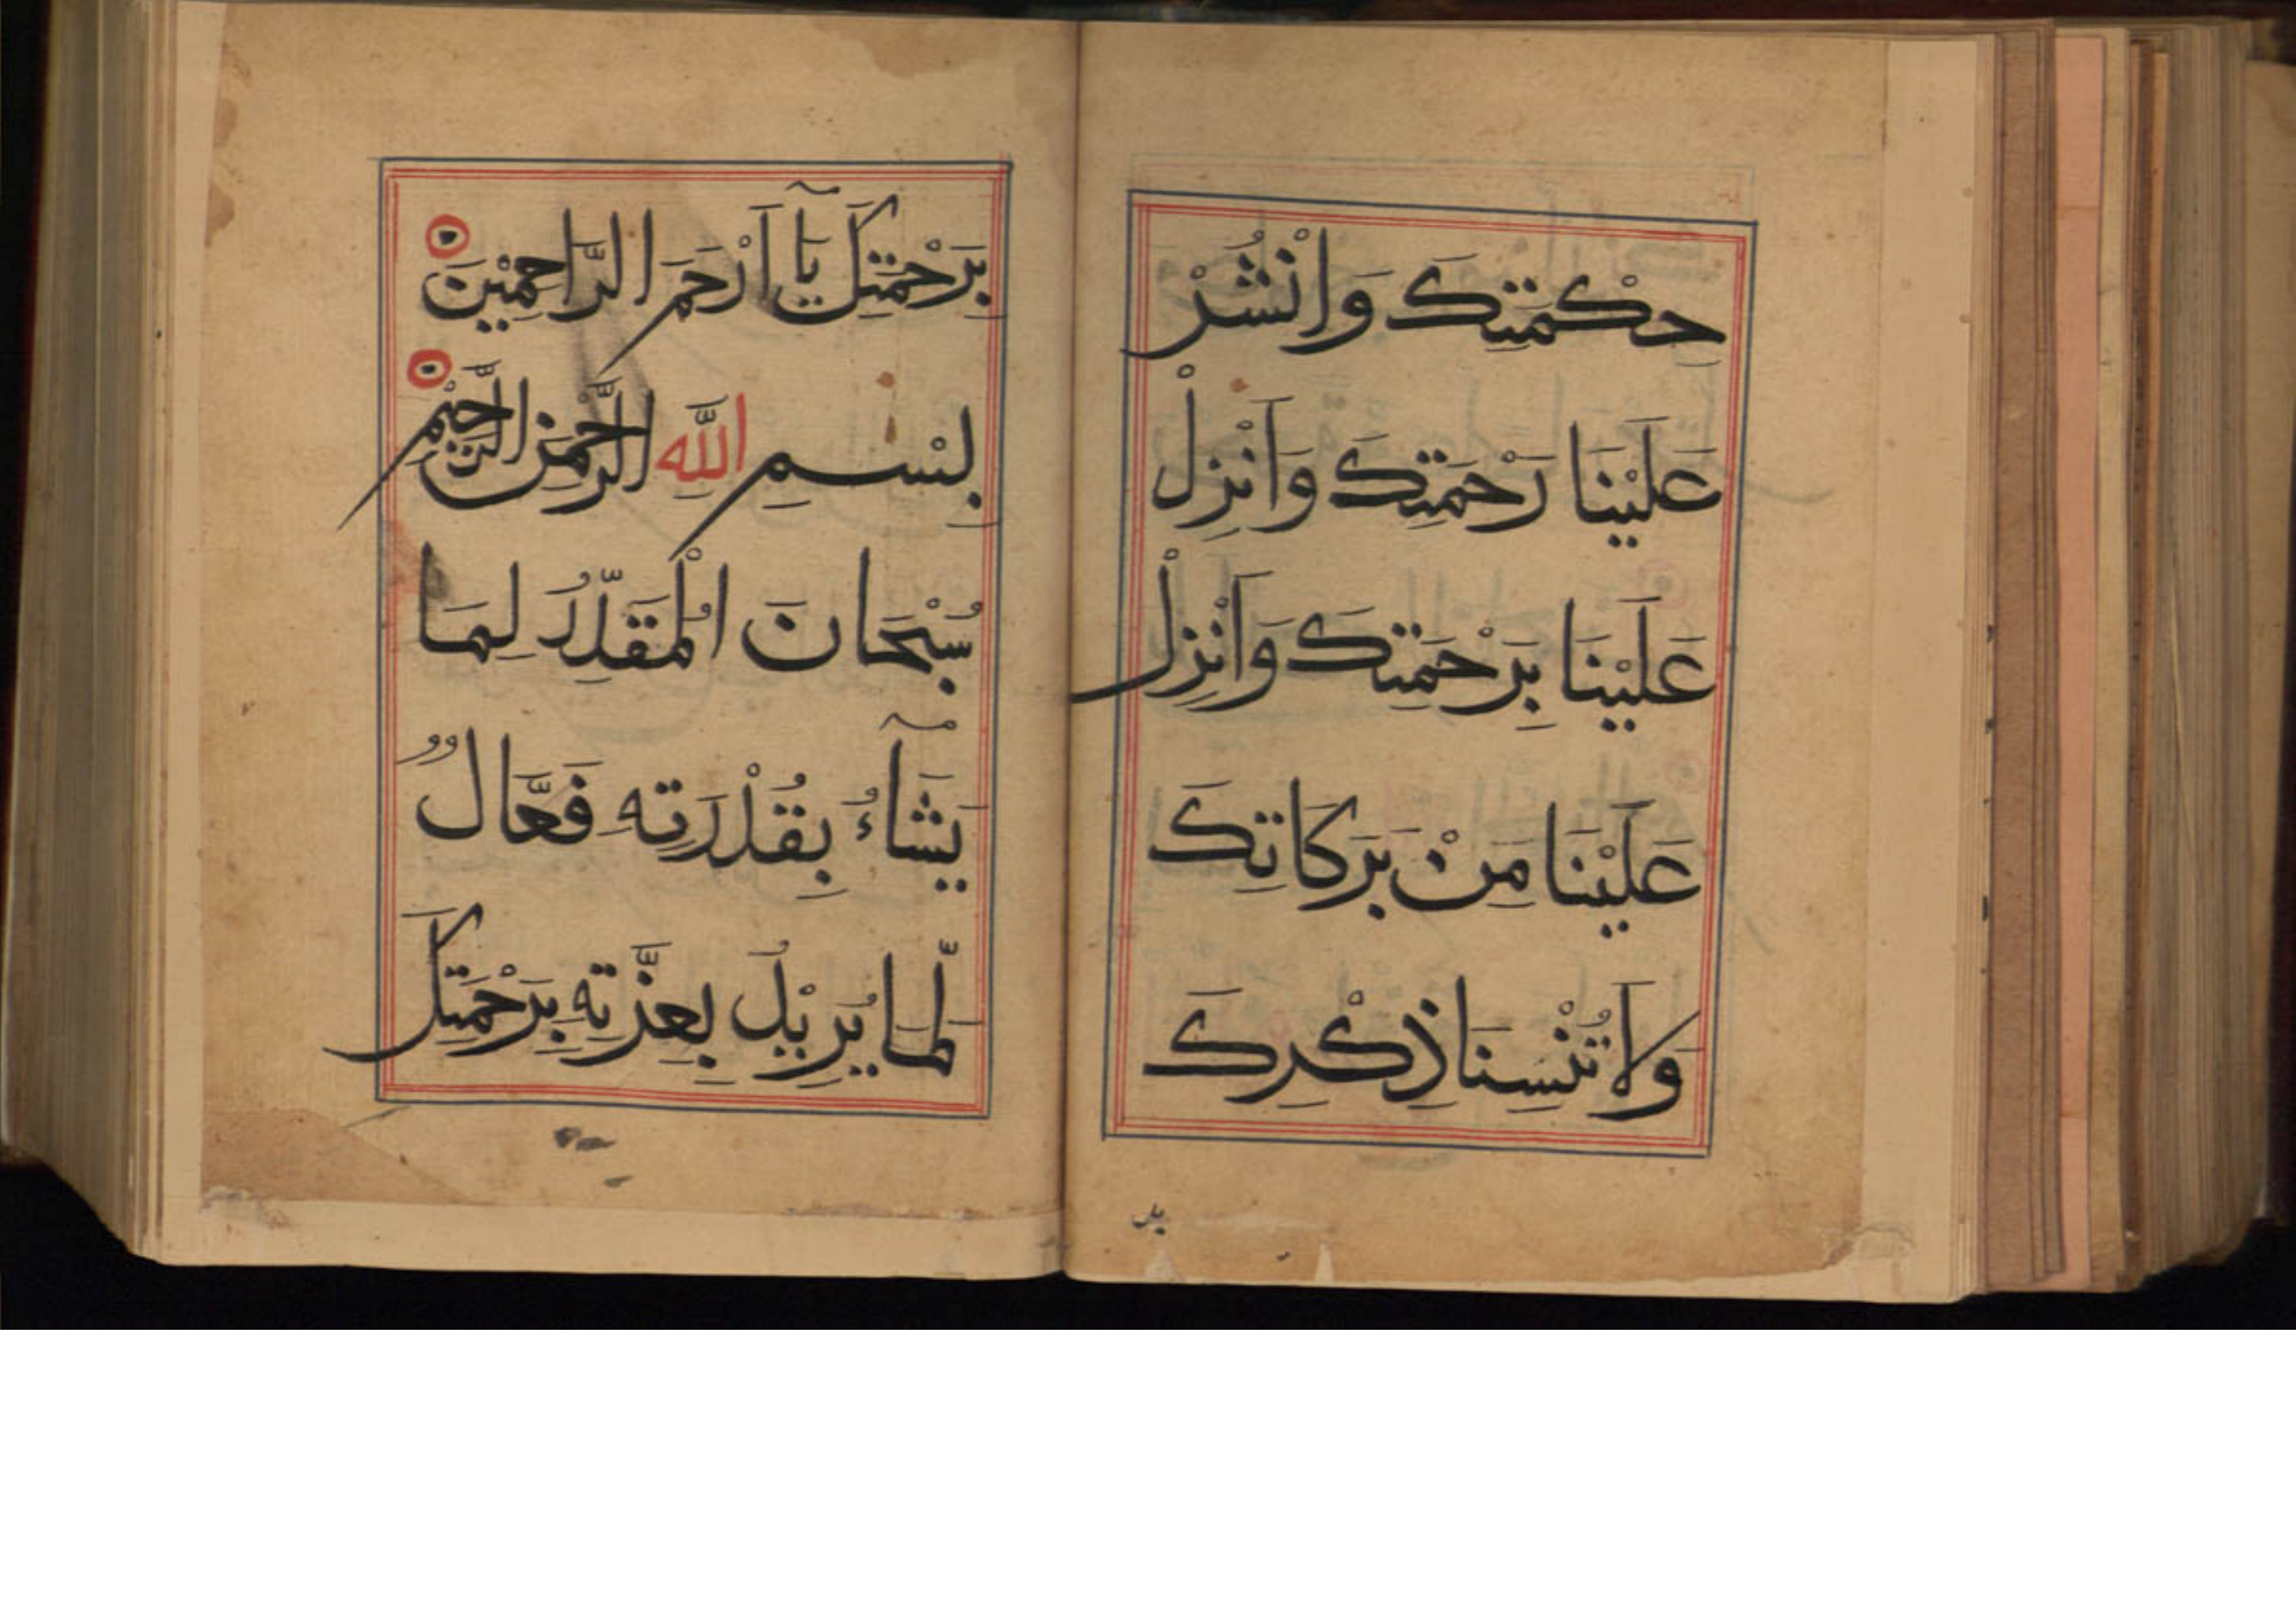 حِكْمَتِكَ وَانْشُرْ
عَلَيْنَا رَحْمَتِكَ وَاَنْزِلْ
عَلَيْنَا بِرَحْمَتِكَ وَاَنْزِلْ
عَلَيْنَا مِنْ بَرَكَاتِكَ
وَلَا تُنْسِنَا ذِكْرِكَ
بِرَحْمَتِكَ يَآ اَرْحَمَ الرَّاحِمِيْنَ
بِسْمِ اللّٰهِ الرَّحْمٰنِ الرَّحِيْمِ
سُبْحَانَ الْمُقَدِّرُ لِمَا
يَشَآءُ بِقُدْرَتِهِ فَعَّالٌ
لِّمَا يُرِيْدُ بِعِزَّتِهِ بِرَحْمَتِكَ